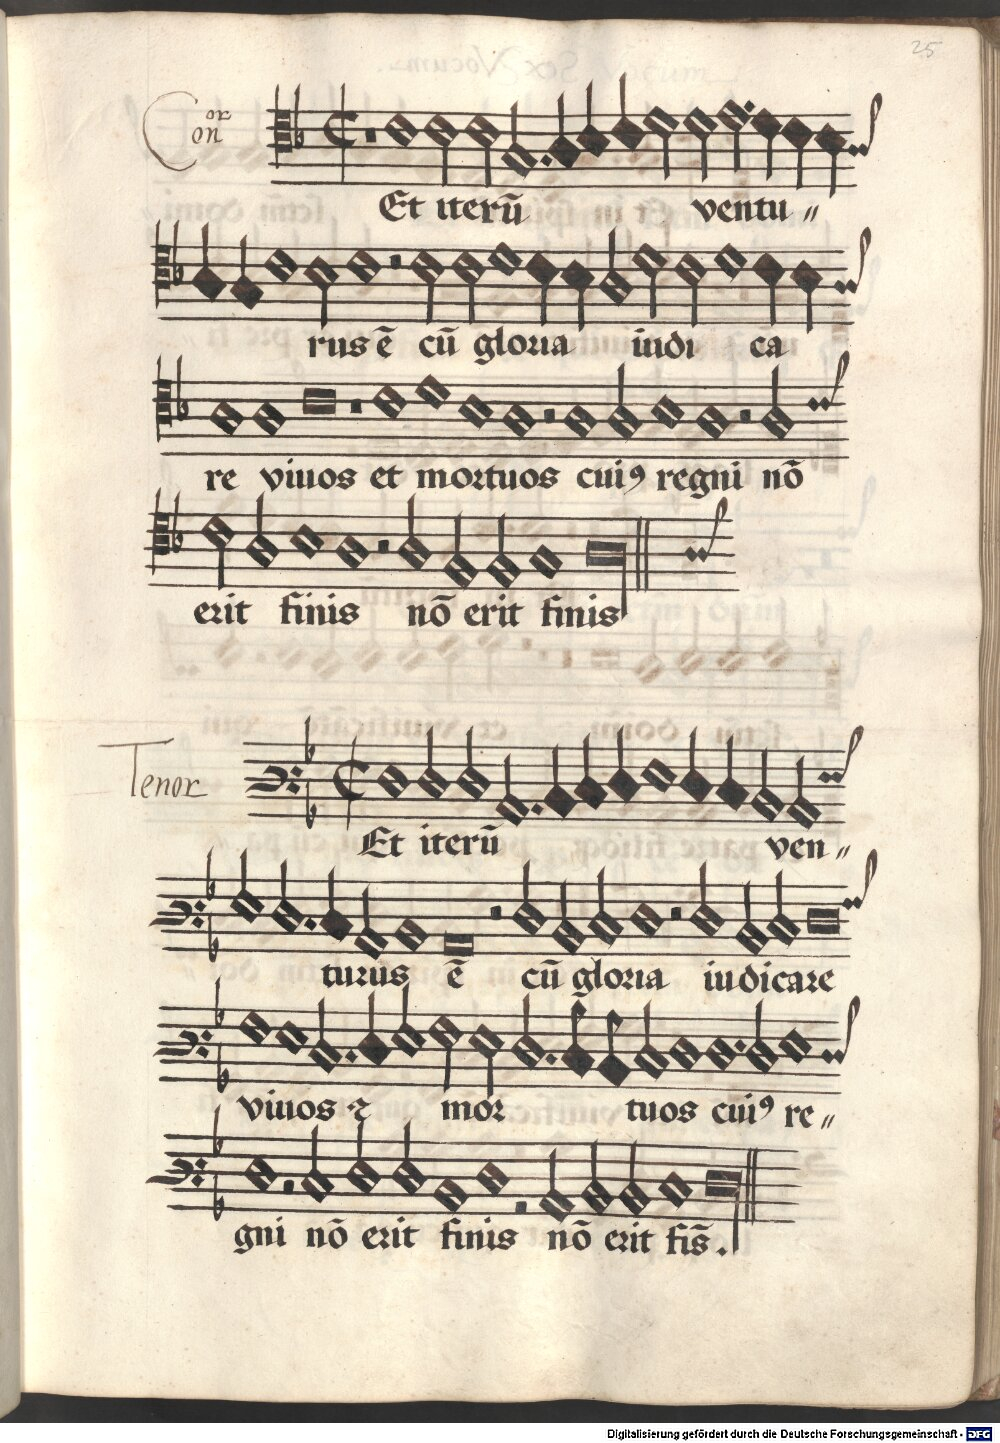 25
Con or
Et iterū ventu〃
rus ē cū gloria iudi ca
re viuos et mortuos cuiꝰ regni nō
erit finis nō erit finis
Tenor
Et iterū ven〃
turus ē cū gloria iudicare
viuos ⁊ mor tuos cuiꝰ re〃
gni nō erit finis nō erit fis̄.
Digitalisierung gefördert durch die Deutsche Forschungsgemeinschaft - DFG